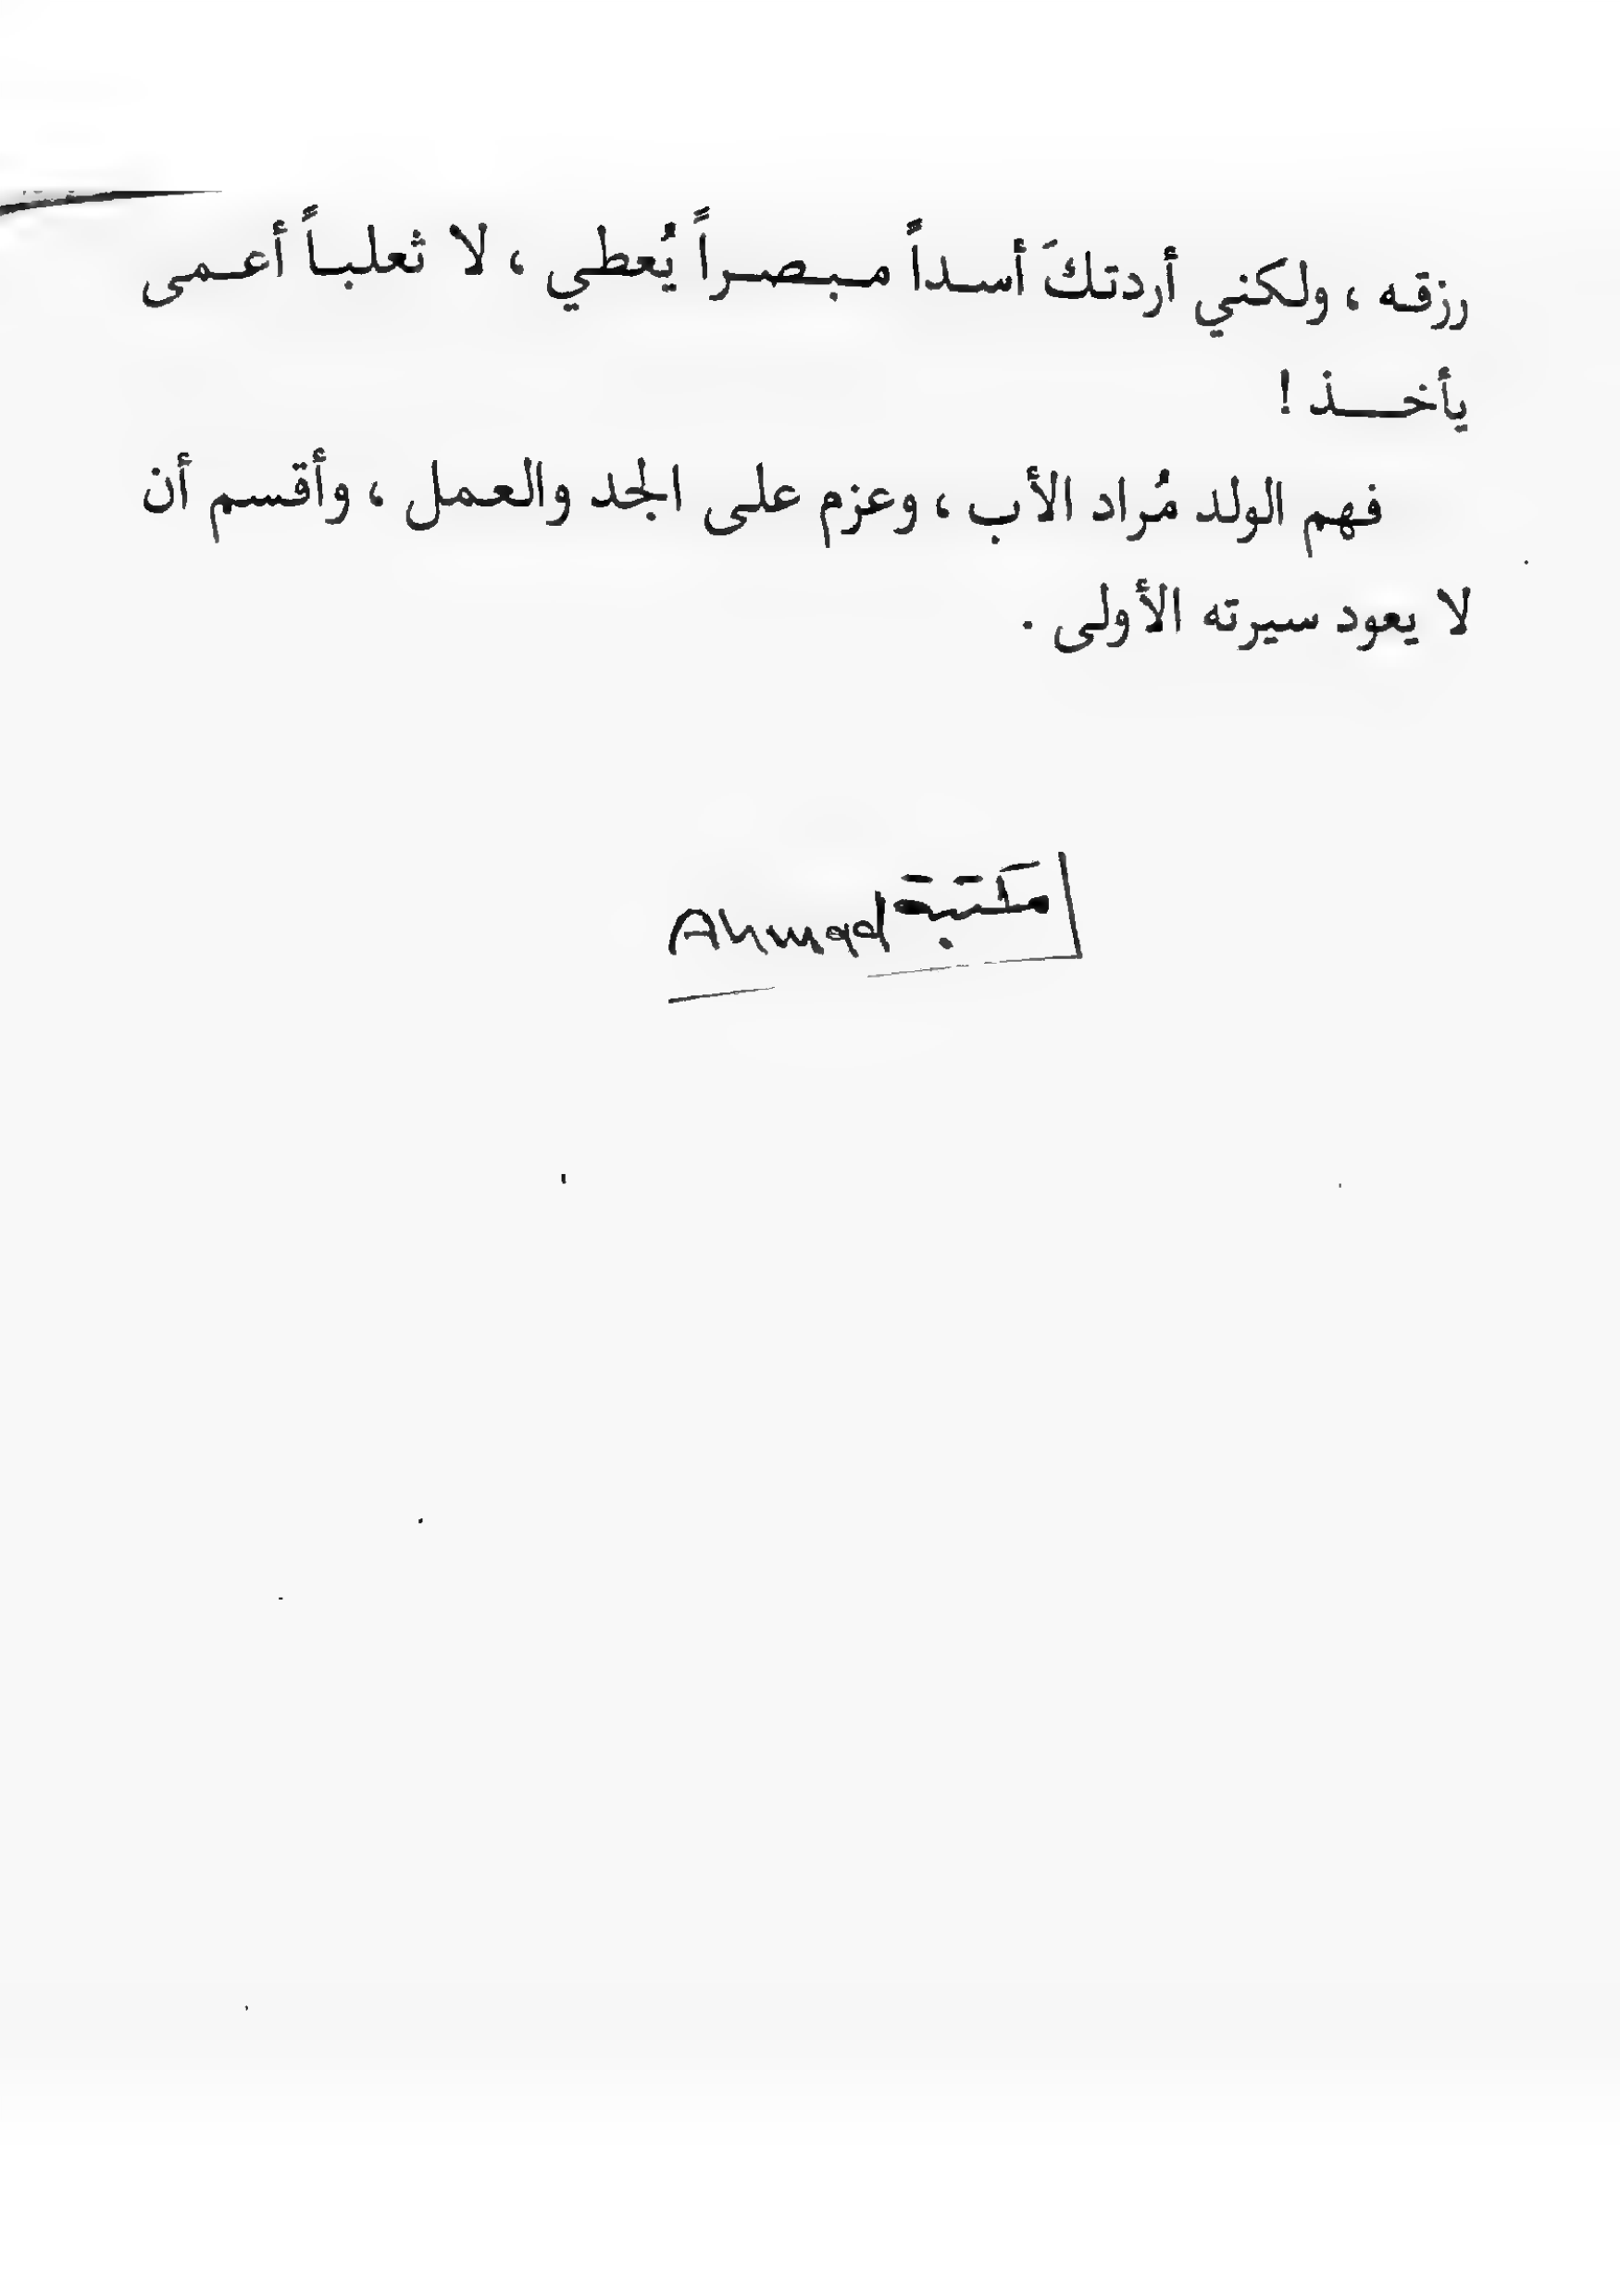 رزقه ، ولكني أردتكَ أسداً مبصراً يُعطي ، لا ثعلباً أعمى
يأخذ !
فهم الولد مُراد الأب ، وعزم على الجد والعمل ، وأقسم أن
لا يعود سيرته الأولى .
مكتبة Ahmad